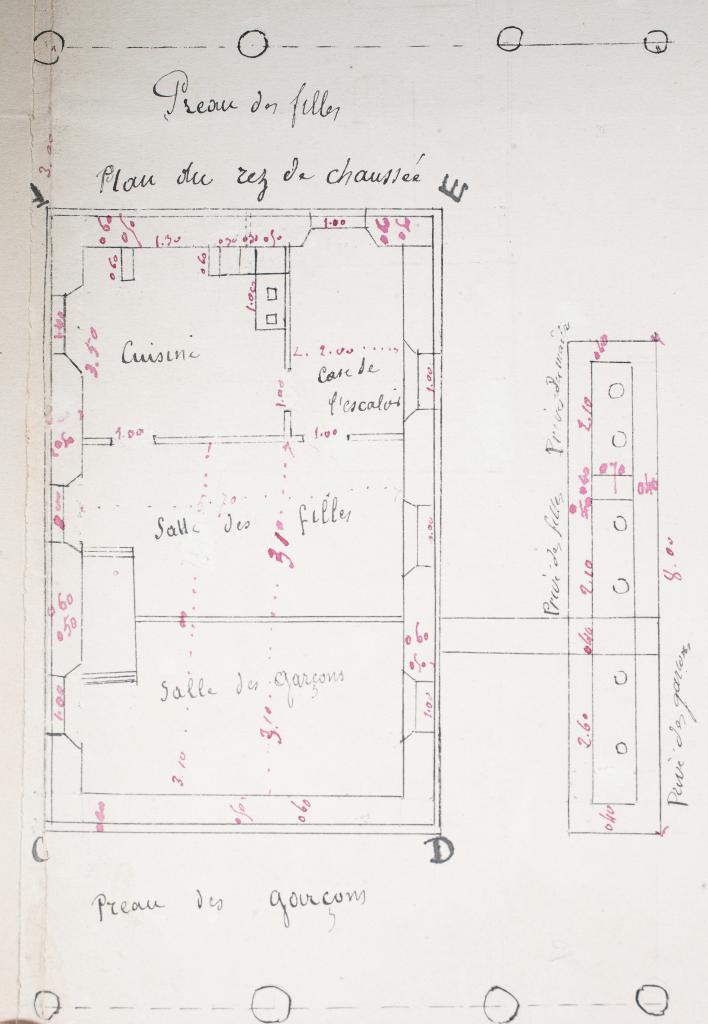 Preau des filles
3.00
Plan du rez de chaussée
E
0.60
1.30
1.00
0.60
0.60
1.00
Cuisine
3.50
2.00
Case de
l'escalier
1.00
1.00
1.00
1.00
5.70
Salle des filles
3.10
0.60
0.50
Salle des Garçons
1.00
1.00
3.10
3.10
0.60
0.50
0.60
C
D
Preau des garçons
0.60
2.10
0.70
Privé des filles
2.10
8.00
0.40
2.60
Privé des garçons
0.40